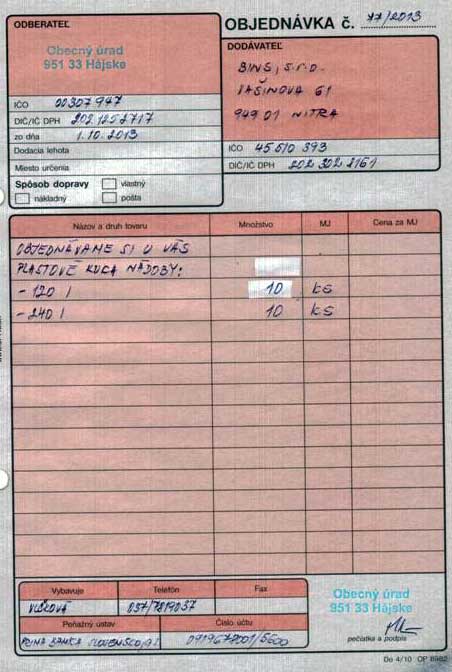 ODBERATEĽ
Obecný úrad
951 33 Hájske
IČO 00307947
DIČ/IČ DPH
zo dňa 1.10.2013
Dodacia lehota
Miesto určenia
Spôsob dopravy vlastný
nákladný pošta
OBJEDNÁVKA č. 77/2013
DODÁVATEĽ
BINS, s.r.o.
949 01 NITRA
IČO 45510 393
DIČ/IČ DPH 202 302 2161
Názov a druh tovaru Množstvo MJ Cena za MJ
OBJEDNÁVAME SI U VÁS
PLASTOVÉ KUCA NÁDOBY:
- 120 l 10 ks
- 240 l 10 ks
Vybavuje Telefón Fax
037/7819037
Peňažný ústav Číslo účtu
BANKA SLOVENSKO /5600
Obecný úrad
951 33 Hájske
pečiatka a podpis